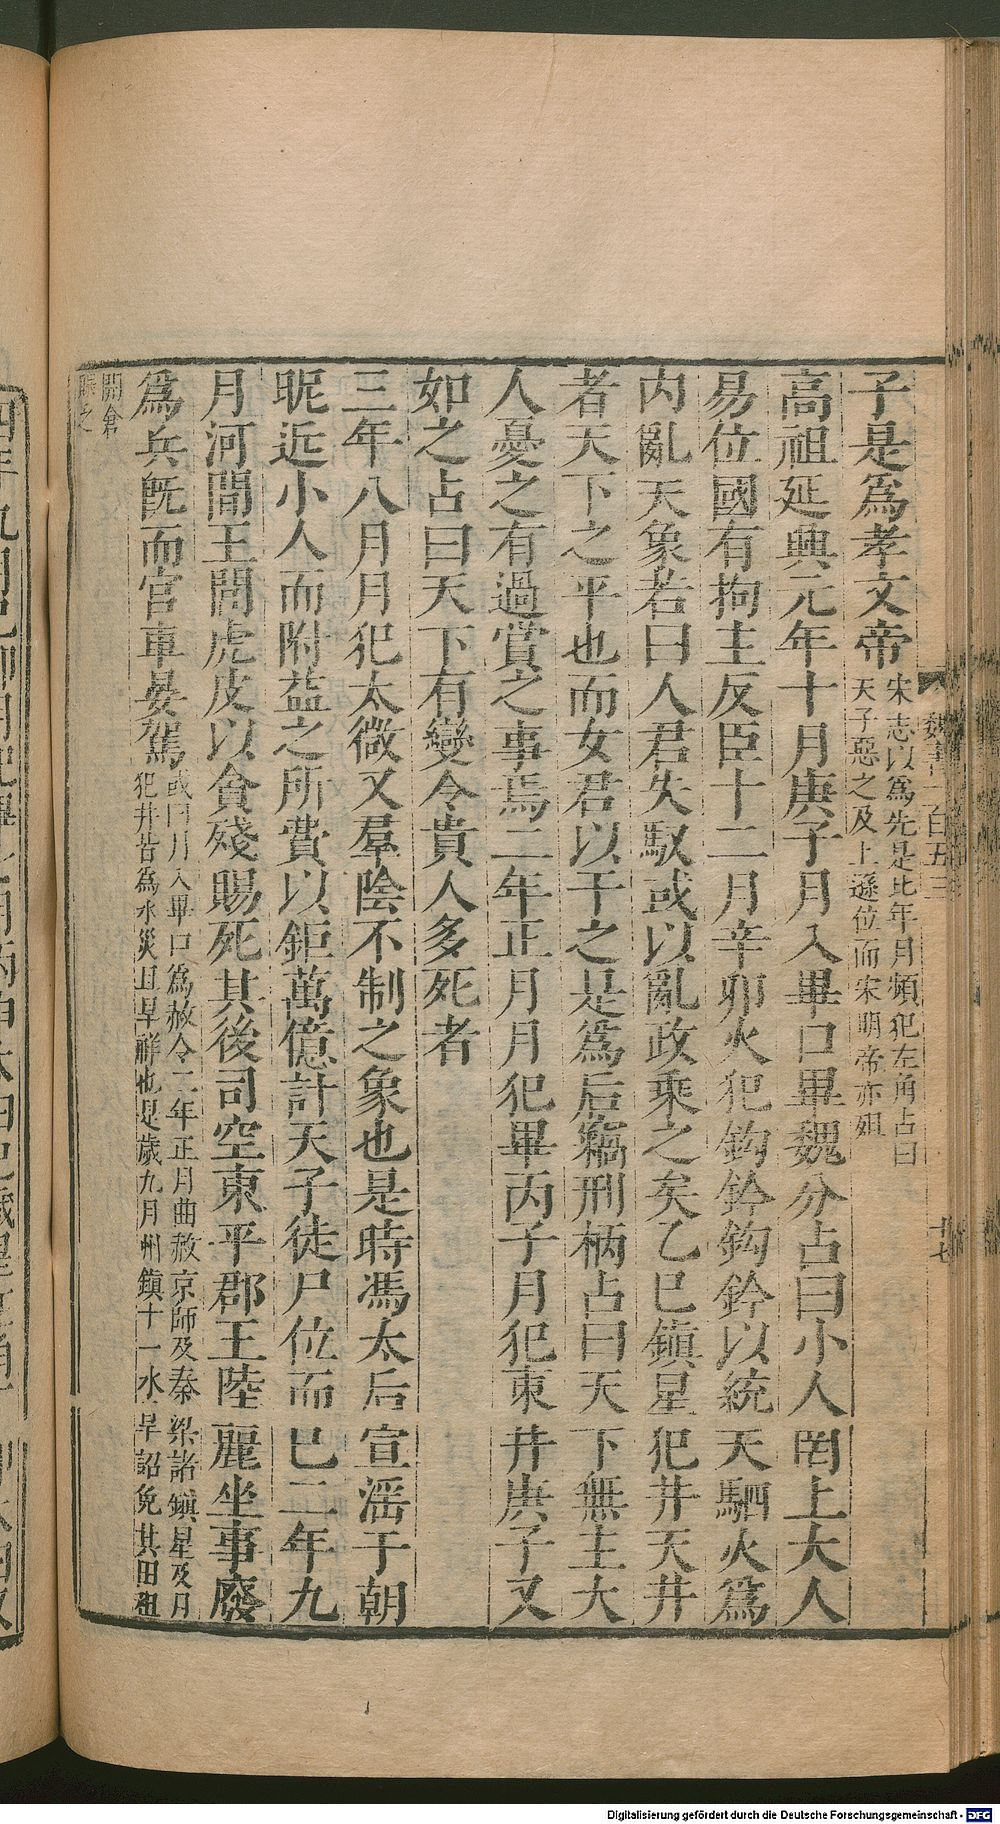 子是爲孝文帝宋志以爲先是比年月頻犯左角占曰
天子惡之及上遜位而宋明帝亦殂
高祖延興元年十月庚子月入畢口畢魏分占曰小人罔上大人
易位國有拘主反臣十二月辛卯火犯鈎鈐鈎鈐以統天駟火爲
内亂天象若曰人君失馭或以亂政乘之矣乙巳鎮星犯井天井
者天下之平也而女君以干之是爲后竊刑柄占曰天下無主大
人憂之有過賞之事焉二年正月月犯畢丙子月犯東井庚子又
如之占曰天下有變令貴人多死者
三年八月月犯太微又羣陰不制之象也是時馮太后宣淫于朝
昵近小人而附益之所費以鉅萬億計天子徒尸位而已二年九
月河間王閭虎皮以貪殘賜死其後司空東平郡王陸麗坐事廢
爲兵旣而宮車晏駕或曰月入畢口爲赦令二年正月曲赦京師及秦梁諸鎮星及月
犯井皆爲水災且旱祥也是歲九月州鎮十一水旱詔免其田租
開倉
賑之
魏書一百五三
十七
Digitalisierung gefördert durch die Deutsche Forschungsgemeinschaft - DFG